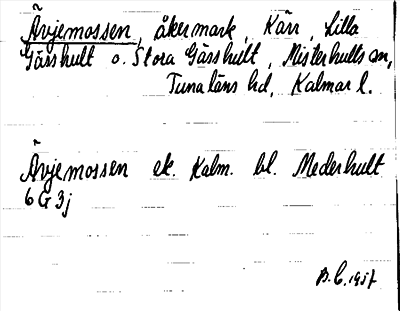 Ävjemossen, åkermark, Kärr, Lilla
Gässhult o. Stora Gässhult, Misterhults sn,
Tunaläns hd, Kalmar l.
Ävjemossen ek. Kalm. bl. Mederhult
6G3j
B.C. 1957